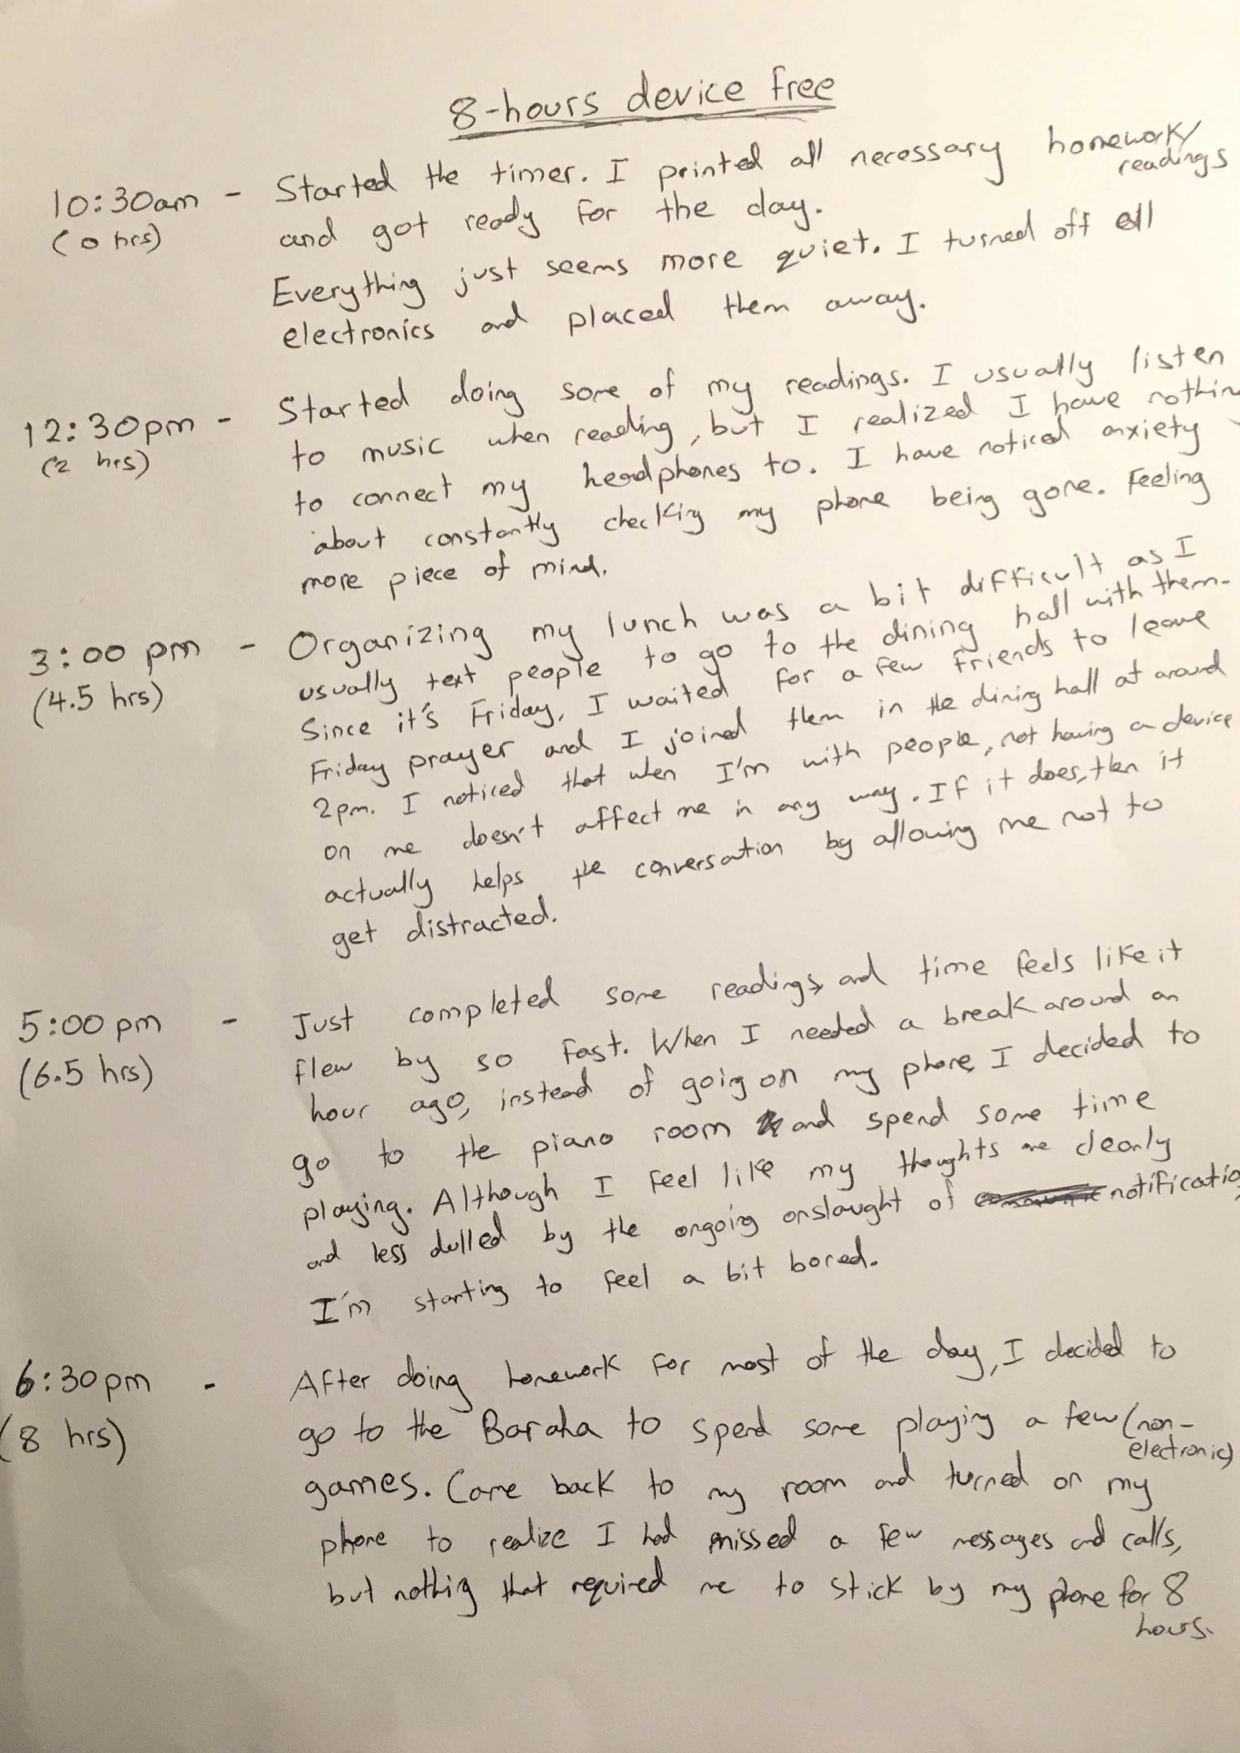 8-hours device free
10:30am - Started the timer. I printed all necessary homework/
readings
(0 hrs) and got ready for the day.
Everything just seems more quiet. I turned off all
electronics and placed them away.
12:30pm - Started doing some of my readings. I usually listen
(2 hrs) to music when reading, but I realized I have nothin
to connect my headphones to. I have noticed anxiety
about constantly checking my phone being gone. Feeling
more piece of mind.
3:00 pm - Organizing my lunch was a bit difficult as I
(4.5 hrs) usually text people to go to the dining hall with them.
Since it's Friday, I waited for a few friends to leave
Friday prayer and I joined them in the dining hall at around
2pm. I noticed that when I'm with people, not having a device
on me doesn't affect me in any way. If it does, then it
actually helps the conversation by allowing me not to
get distracted.
5:00 pm - Just completed some readings and time feels like it
(6.5 hrs) flew by so fast. When I needed a break around an
hour ago, instead of going on my phone, I decided to
go to the piano room and spend some time
playing. Although I feel like my thoughts are clearly
and less dulled by the ongoing onslaught of notificatio
I'm starting to feel a bit bored.
6:30pm - After doing homework for most of the day, I decided to
(8 hrs) go to the Baraha to spend some playing a few (non-
electronic)
games. Came back to my room and turned on my
phone to realize I had missed a few messages and calls,
but nothing that required me to stick by my phone for 8
hours.